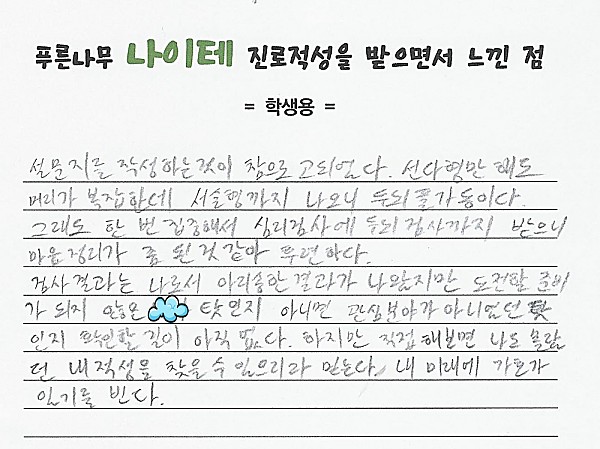 푸른나무 나이테 진로적성을 받으면서 느낀 점
= 학생용 =
설문지를 작성하는것이 참으로 고되었다. 선다형만 해도
머리가 복잡한데 서술형까지 나오니 두뇌풀가동이다.
그래도 한 번 집중해서 심리검사에 두뇌검사까지 받으니
마음정리가 좀 된것 같아 후련하다.
검사결과는 나로서 아리송한 결과가 나왔지만 도전할 준비
가 되지 않은 탓인지 아니면 관심분야가 아니었던 탓
인지 확인할 길이 아직 없다. 하지만 직접 해보면 나도 몰랐
던 내적성을 찾을수 있으리라 믿는다. 내 미래에 가호가
있기를 빈다.